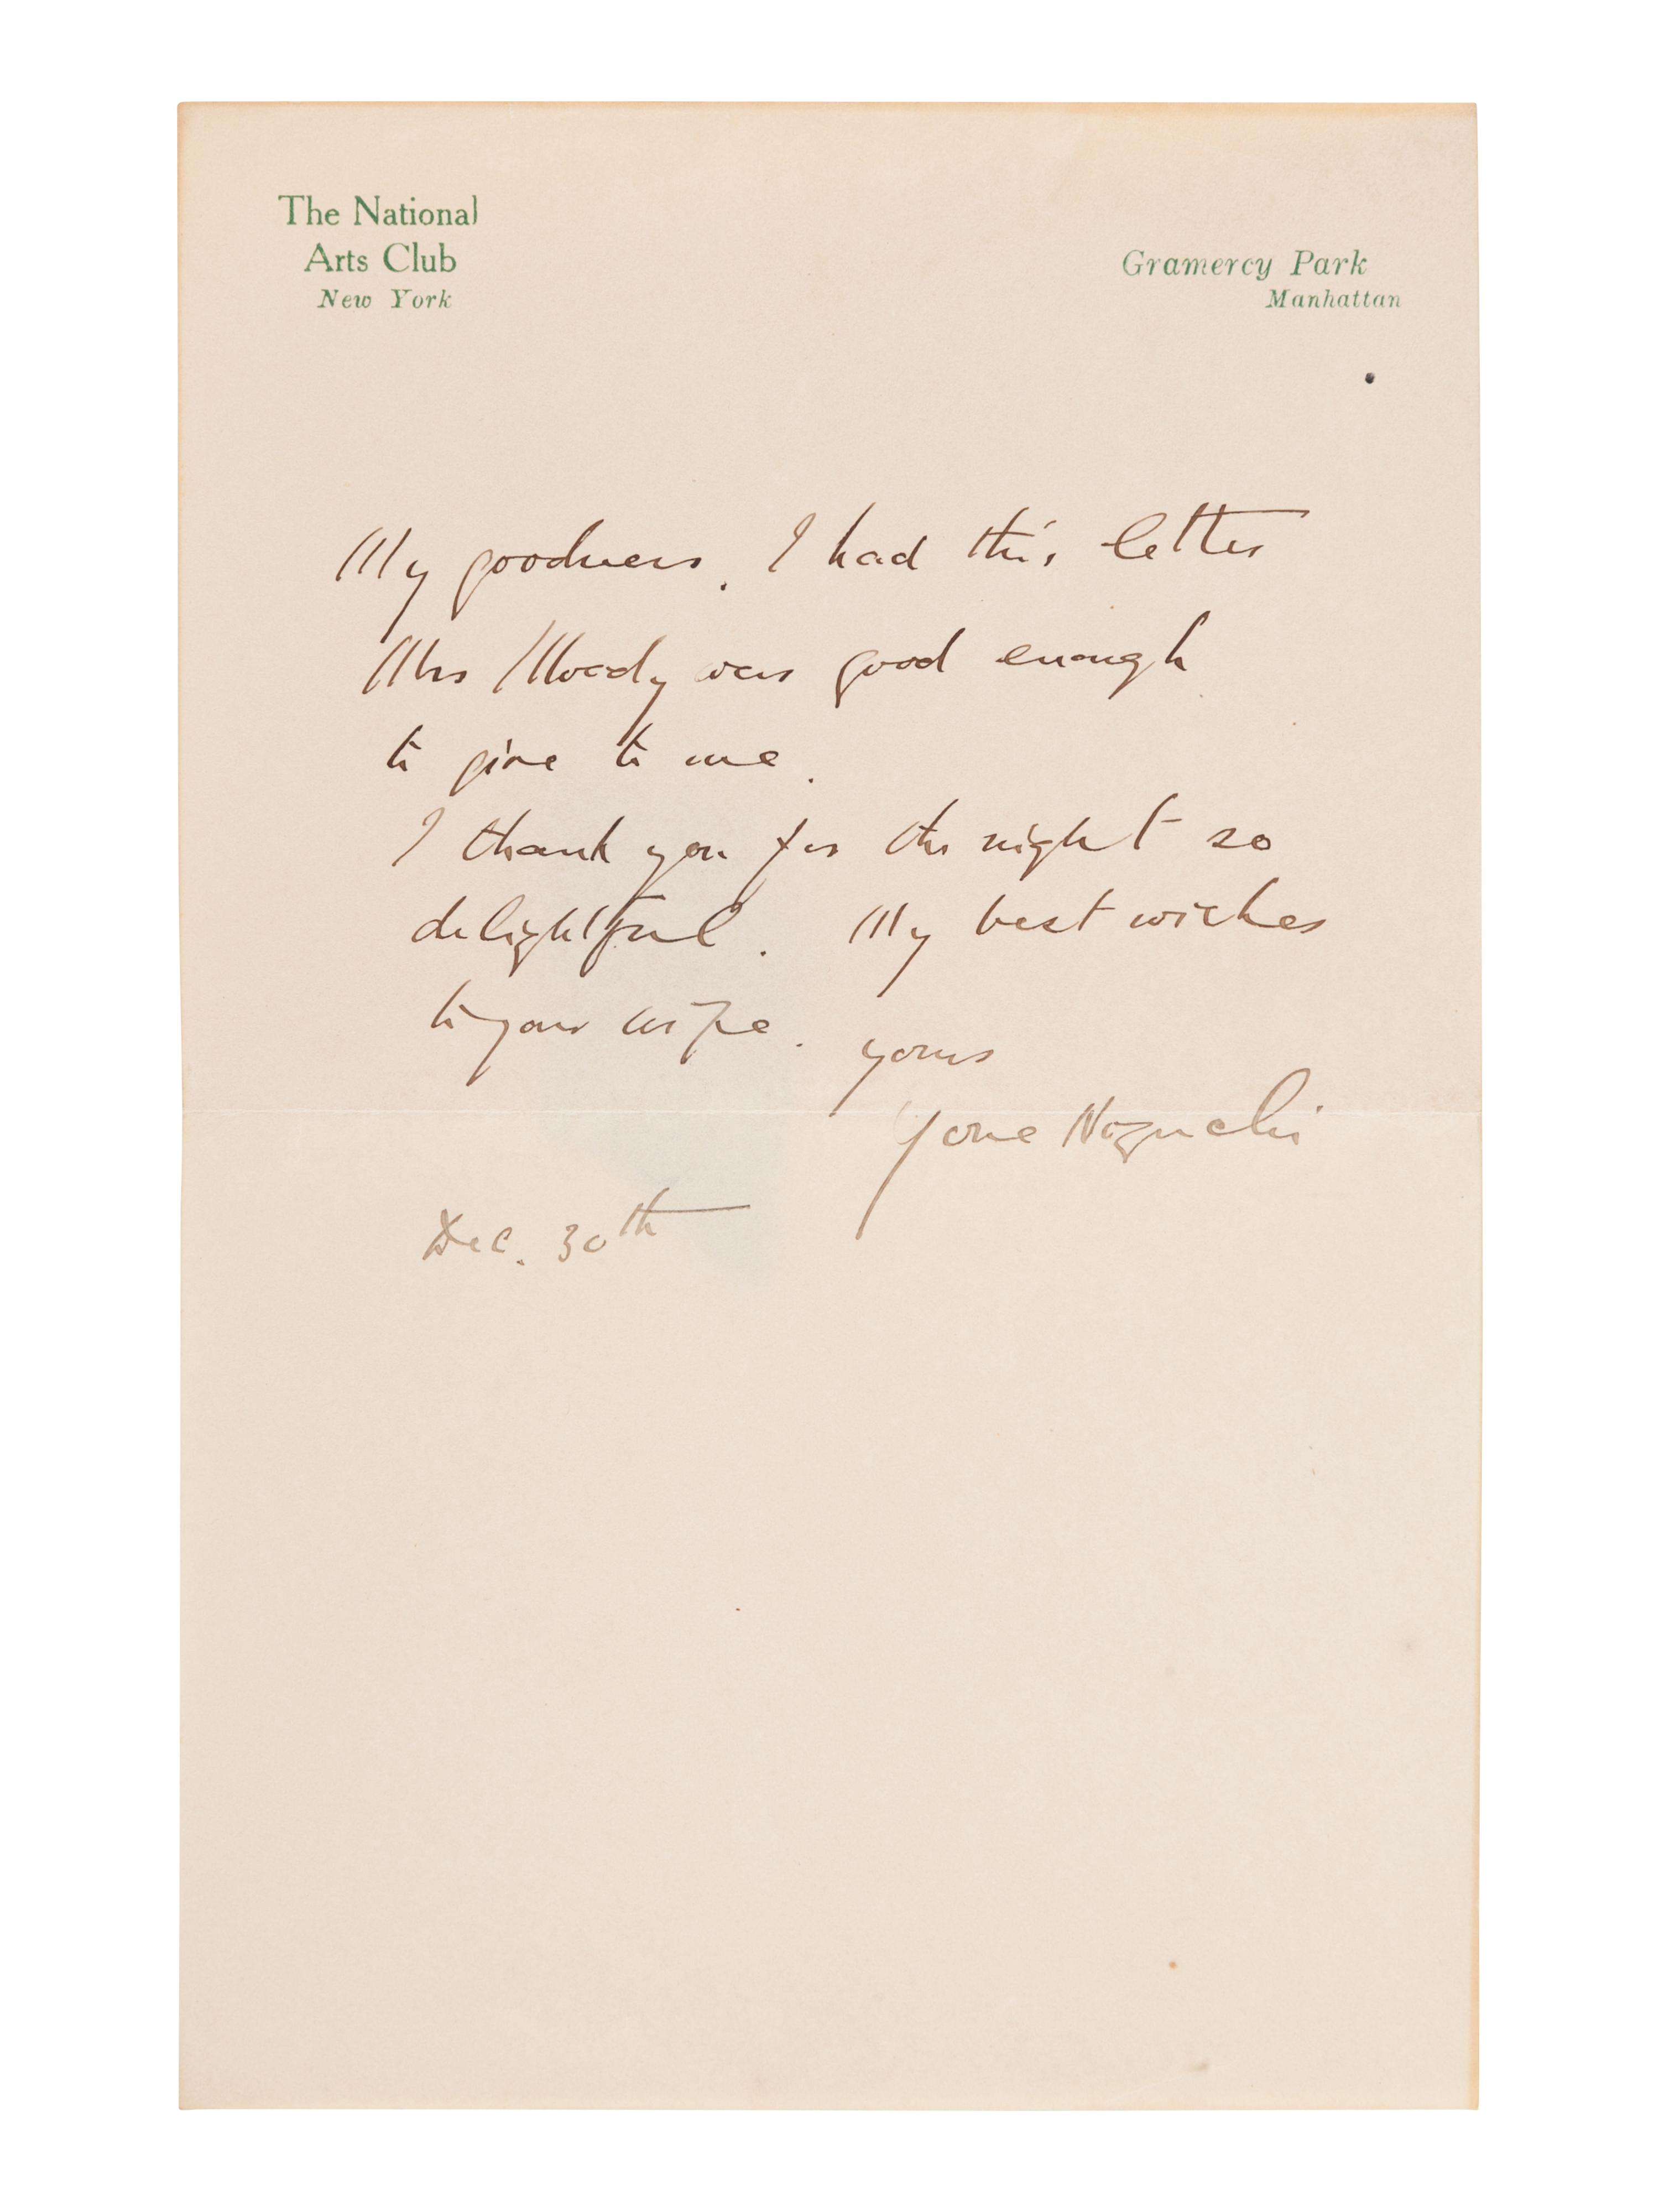 The National
Arts Club
New York
Gramercy Park
Manhattan
My goodness. I had this letter
Mrs Moody was good enough
to give to me.
I thank you for the night so
delightful. My best wishes
to your wife. yours
Yone Noguchi
Dec. 30th